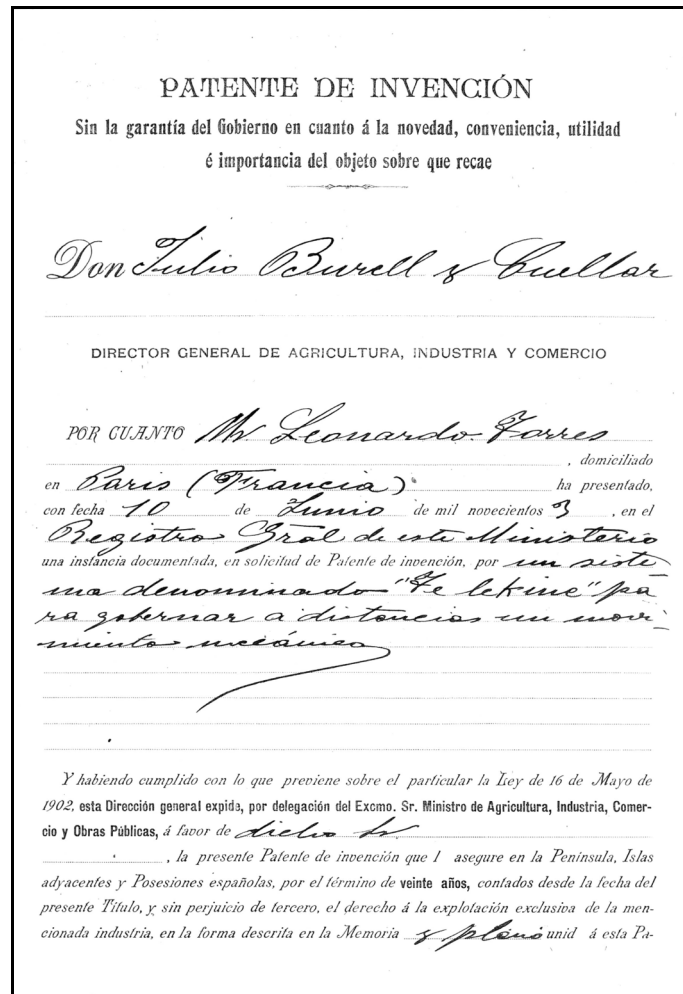 PATENTE DE INVENCIÓN
Sin la garantía del Gobierno en cuanto á la novedad, conveniencia, utilidad
é importancia del objeto sobre que recae
Don Julio Burell y Cuellar
DIRECTOR GENERAL DE AGRICULTURA, INDUSTRIA Y COMERCIO
POR CUANTO Mr Leonardo Torres
, domiciliado
en Paris (Francia) ha presentado,
con fecha 10 de Junio de mil novecientos 3, en el
Registro Gral de este Ministerio
una instancia documentada, en solicitud de Patente de invención, por un siste
ma denominado "Te lekine" pa
ra gobernar a distancias un movi-
miento mecánico
Y habiendo cumplido con lo que previene sobre el particular la Ley de 16 de Mayo de
1902, esta Dirección general expida, por delegación del Excmo. Sr. Ministro de Agricultura, Industria, Comer-
cio y Obras Públicas, á favor de dicho Sr
, la presente Patente de invención que l asegure en la Península, Islas
adyacentes y Posesiones españolas, por el término de veinte años, contados desde la fecha del
presente Título, y sin perjuicio de tercero, el derecho á la explotación exclusiva de la men-
cionada industria, en la forma descrita en la Memoria y plano unid á esta Pa-